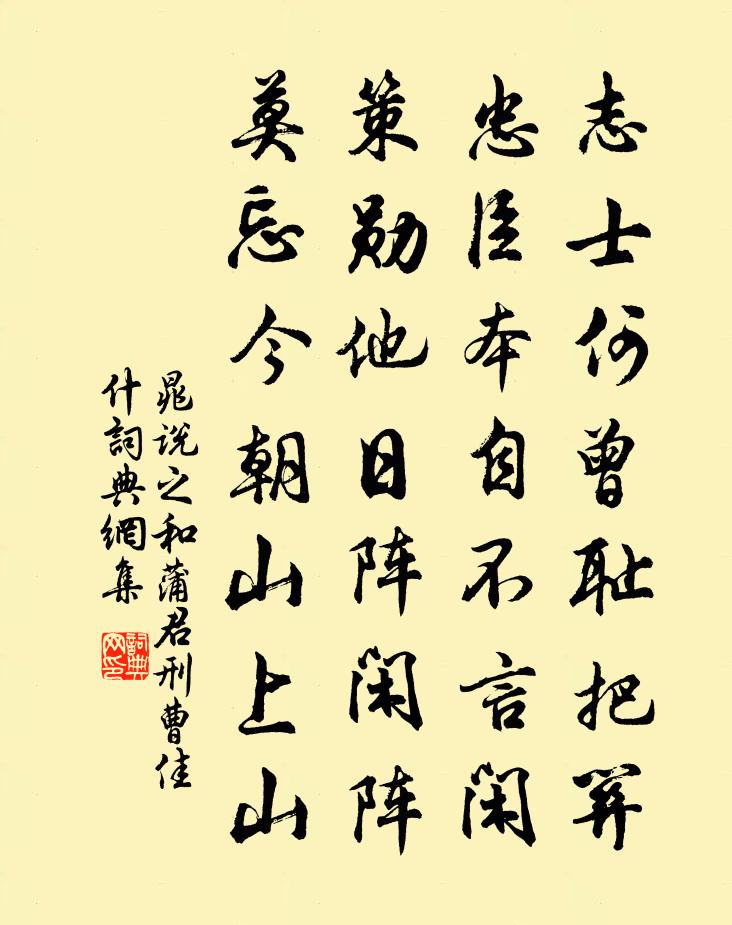 志士何曾耻把关
忠臣本自不言闲
策勋他日阵闲阵
莫忘今朝山上山
晁说之和蒲君刑曹佳
什詞典網集
詞典
网印